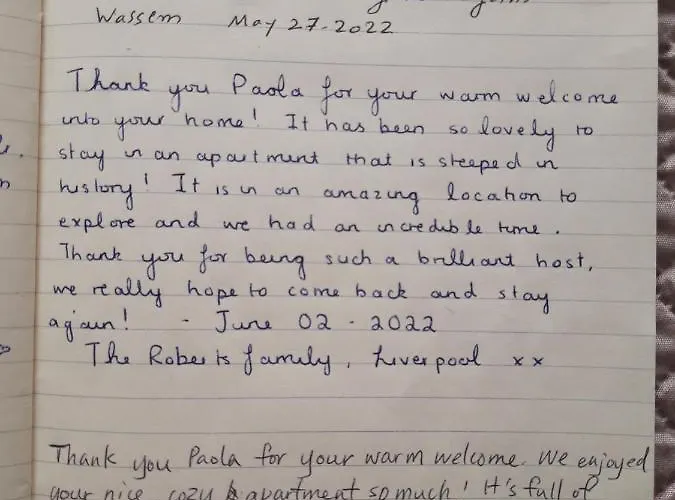 Wassem May 27-2022
Thank you Paola for your warm welcome
into your home! It has been so lovely to
stay in an apartment that is steeped in
history! It is in an amazing location to
explore and we had an incredible time.
Thank you for being such a brilliant host,
we really hope to come back and stay
again! - June 02 - 2022
The Roberts family, Liverpool xx
Thank you Paola for your warm welcome. We enjoyed
your nice, cozy apartment so much! It's full of